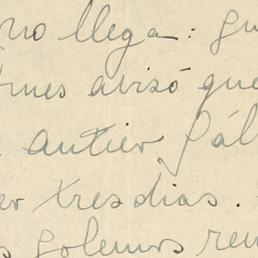 no llega: gu
rnes avisó que
antier Pál
er tres dias.
s golemos ren